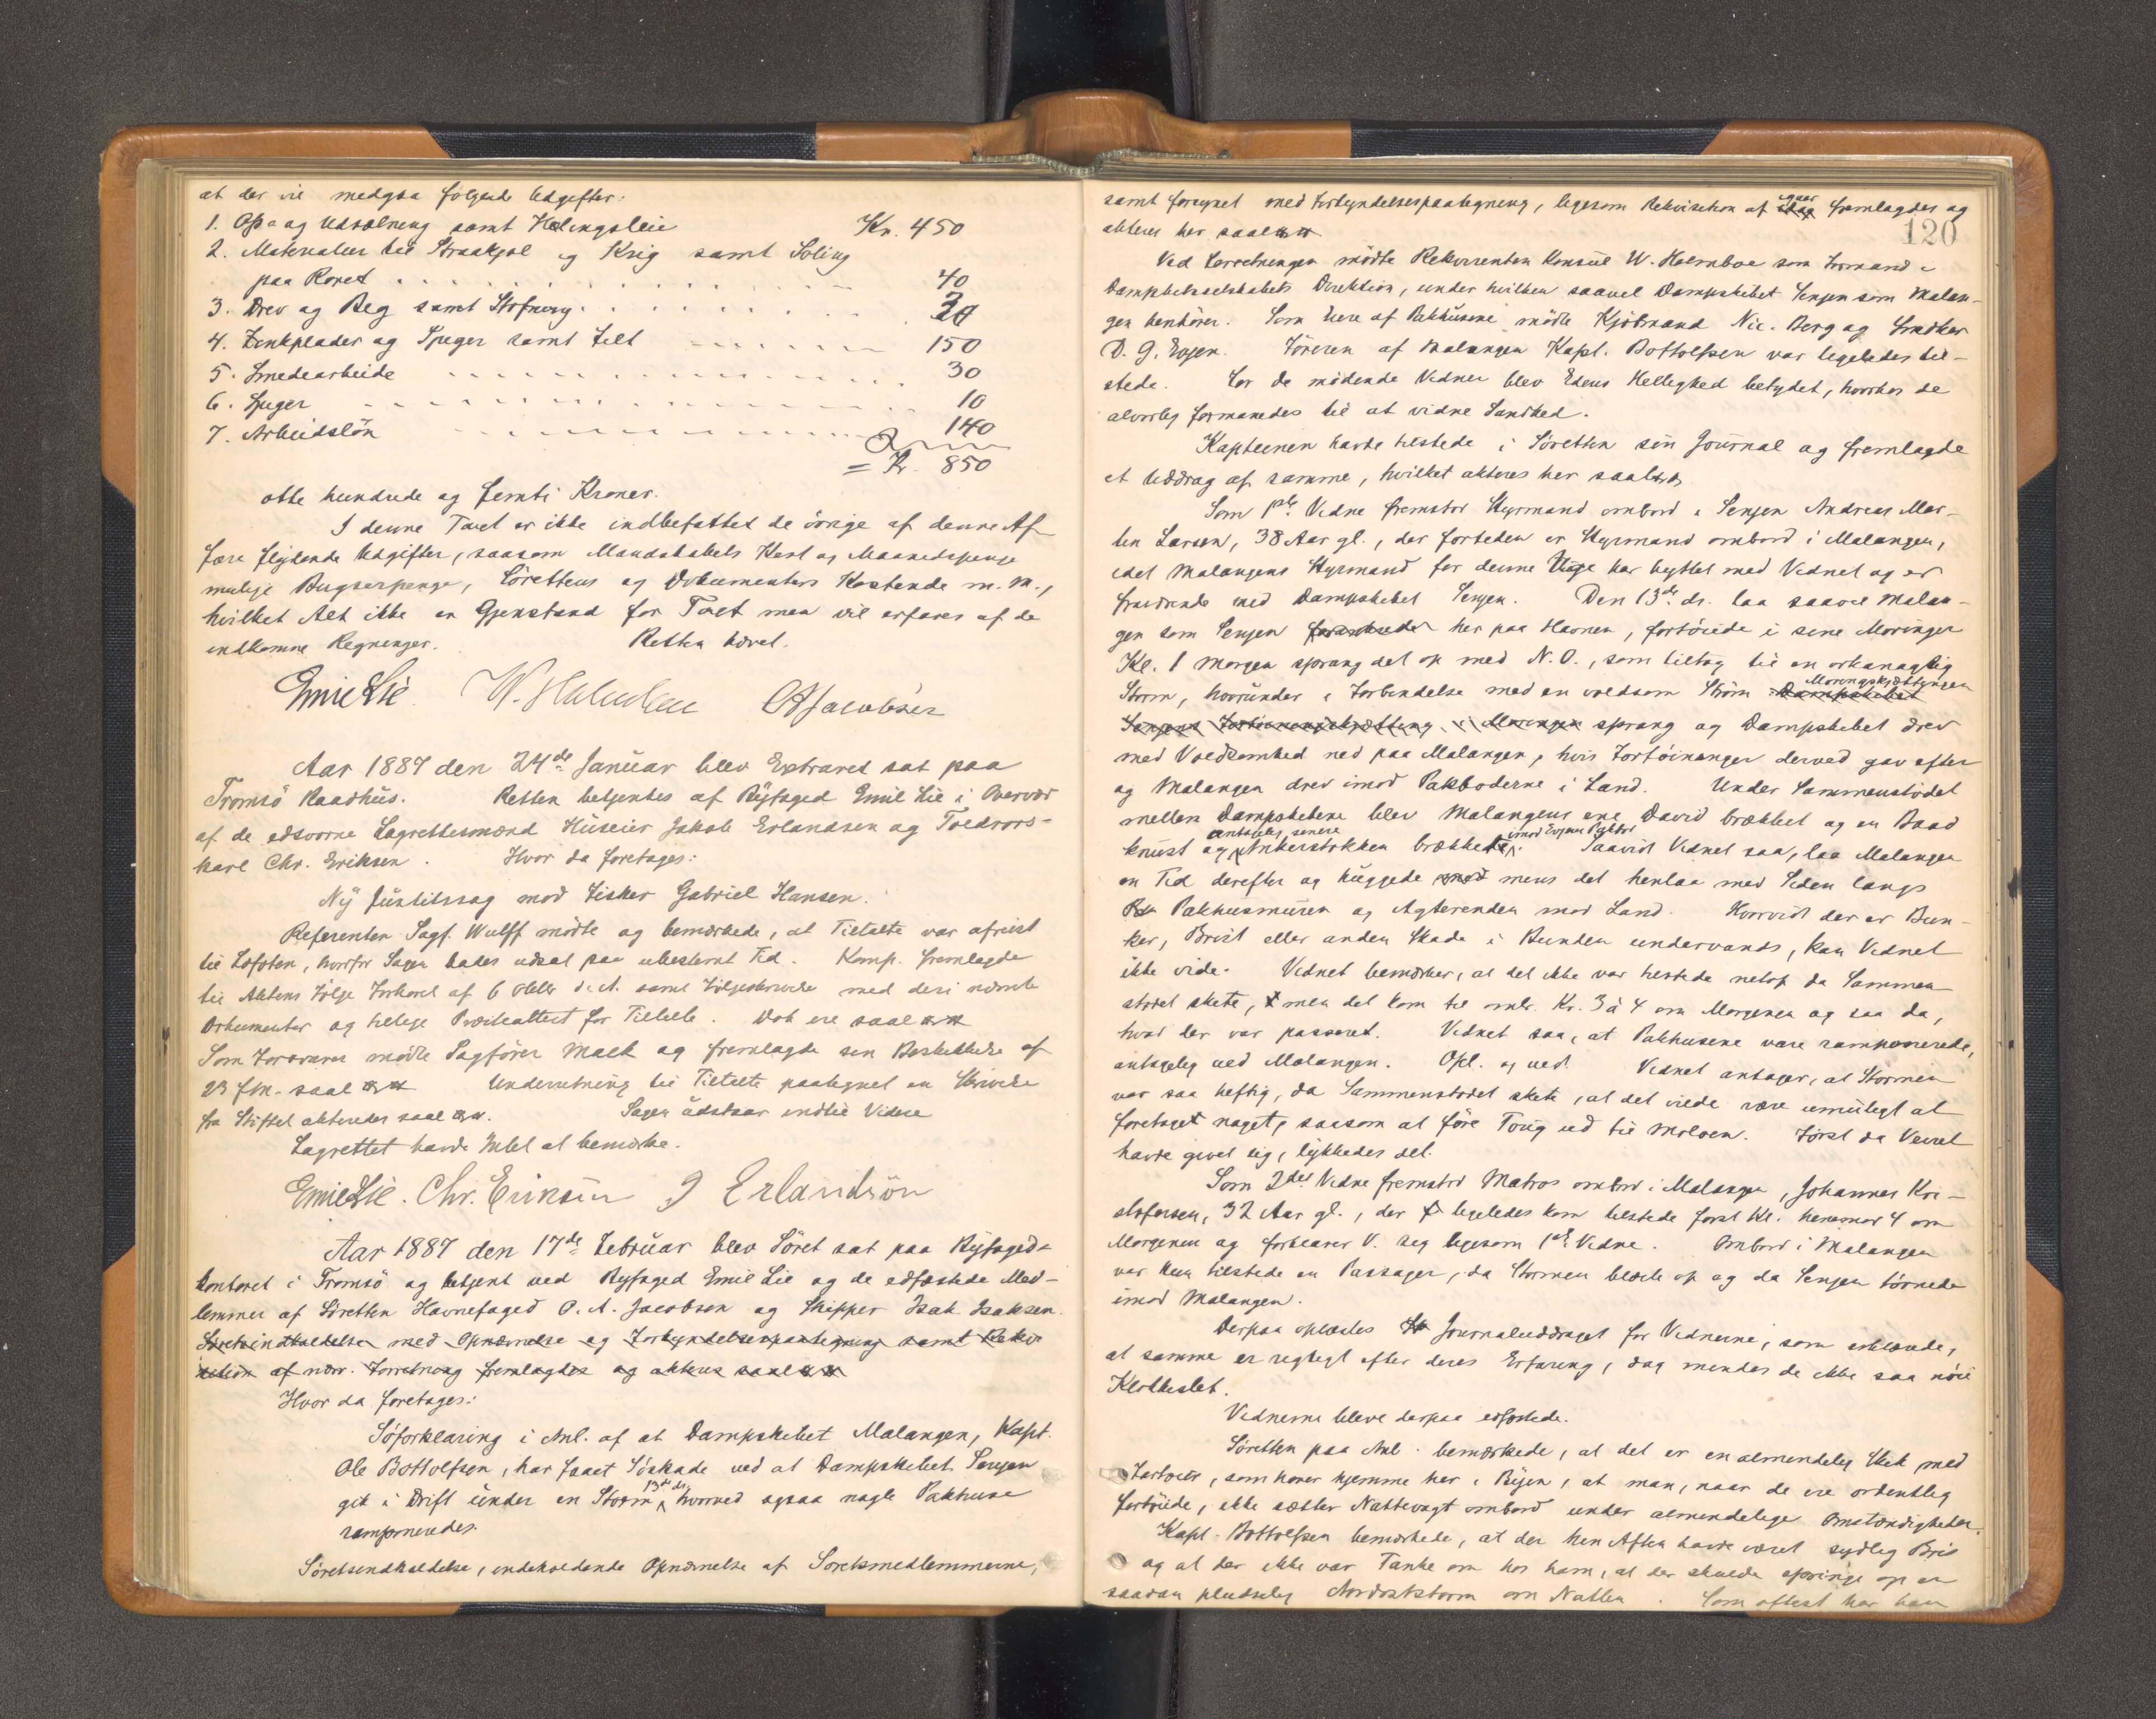 at der vil medgaa følgende Udgifter:
1. Op- og Udsætning samt Helingsleie Kr. 450
2. Materialier til Straakjøl og Krig samt Soling
paa Roret 40
3. Drev og Beg samt Stopning 30
4. Zinkplader og Spiger samt Filt 150
5. Smedearbeide 30
6. Spiger 10
7. Arbeidsløn 140
= Kr. 850
otte hundrede og femti Kroner.
I denne Taxt er ikke indbefattet de øvrige af denne Af-
fære flydende Udgifter, saasom Mandskabets Kost og Maanedspenge
mulige Bugserpenge, Sørettens og Dokumenters Kostende m. M.,
hvilket Alt ikke er Gjenstand for Taxt men vil erfares af de
indkomne Regninger. Retten hævet.
Emil Lie W. Holmboe O A Jacobsen
Aar 1887 den 24de Januar blev Extraret sat paa
Tromsø Raadhus. Retten betjentes af Byfoged Emil Lie i Overvær
af de edsvorne Lagrettesmænd Huseier Jakob Erlandsen og Toldrors-
karl Chr. Eriksen. Hvor da foretages:
Ny Justitssag mod Fisker Gabriel Hansen.
Referenten Sagf. Wulff mødte og bemærkede, at Tiltalte var afreist
til Lofoten, hvorfor Sagen bades udsat paa ubestemt Tid. Komp. fremlagde
til Aktens Følge Forhørel af 6 Oktbr d. A. samt Følgeskrivelse med deri nævnte
Dokumenter og tillige Præsteattest for Tiltalte. Dok ere saal
Som Forsvarer mødte Sagfører Mack og fremlagde sin Beskikkelse af
23 f.M. saal Underretning til Tiltalte paategnet en Skrivelse
fra Stiftet akteredes saal Sagen udstaar indtil Videre
Lagrettet havde Intet at bemærke.
Emil Lie. Chr. Eriksen J Erlandsøn
Aar 1887 den 17de Februar blev Søret sat paa Byfoged-
kontoret i Tromsø og betjent ved Byfoged Emil Lie og de edfæstede Med-
lemmer af Søretten Havnefoged O. A. Jacobsen og Skipper Isak Isaksen.
Søretsindkaldelse med Opnævnelse og Forkyndelsespaategning samt Rekvi-
sition af nærv. Forretning fremlagdes og akteres saal
Hvor da foretages:
Søforklaring i Anl. af at Dampskibet Malangen, Kapt.
Ole Bottolfsen, har faaet Søskade ved at Dampskibet Senjen
gik i Drift under en Storm 13de ds, hvorved ogsaa nogle Pakhuse
ramponeredes.
Søretsindkaldelse, indeholdende Opnævnelse af Søretsmedlemmerne,
120
samt forsynet med Forkyndelsespaategning, ligesom Rekvisition af fremlagdes og
akteres her saal
Ved Forretningen mødte Rekvirenten Konsul W. Holmboe som Formand i
Dampskibsselskabets Direktion, under hvilken saavel Dampskibet Senjen som Malan-
gen henhører. Som Eiere af Pakhusene mødte Kjøbmand Nic. Berg og Snedker
D. G. Evjen. Føreren af Malangen Kapt. Bottolfsen var ligeledes til-
stede. For de mødende Vidner blev Edens Hellighed betydet, hvorhos de
alvorlig formanedes til at vidne Sandhed.
Kapteinen havde tilstede i Søretten sin Journal og fremlagde
et Uddrag af samme, hvilket akteres her saal
Som 1ste Vidne fremstod Styrmand ombord i Senjen Andreas Mar-
tin Larsen, 38 Aar gl., der fortiden er Styrmand ombord i Malangen,
idet Malangens Styrmand for denne Uge har byttet med Vidnet og er
fraværende med Dampskibet Senjen. Den 13de ds. laa saavel Malan-
gen som Senjen her paa Havnen, fortøiede i sine Moringer
Kl. 1 Morgen sprang det op med N. O., som tiltog til en orkanagtig
Storm, hvorunder i Forbindelse med en voldsom Strøm Dampskibet Moringskjættingen
Senjens Fortøiningskjætting i Moringen sprang og Dampskibet drev
med Voldsomhed ned paa Malangen, hvis Fortøininger derved gav efter
og Malangen drev imod Pakboderne i Land. Under Sammenstødet
mellem Dampskibene blev Malangens ene David brækket og en Baad
knust og antagelig senere Ankerstokken brækket imod Evjens Pakbod. Saavidt Vidnet saa, laa Malangen
en Tid derefter og huggede mod mens det henlaa med Siden langs
Pakhusmuren og Agterenden mod Land. Hvorvidt der er Bun-
ker, Brist eller anden Skade i Bunden undervands, kan Vidnet
ikke vide. Vidnet bemærker, at det ikke var tilstede netop da Sammen-
stødet skete, men det kom til omtr. Kl. 3 à 4 om Morgenen og saa da,
hvad der var passeret. Vidnet saa, at Pakhusene vare ramponerede,
antagelig ved Malangen. Opl. og ved. Vidnet antager, at Stormen
var saa heftig, da Sammenstødet skete, at det vilde være umuligt at
foretaget noget, saasom at føre Toug ud til Moloen. Først da Veiret
havde givet sig, lykkedes det.
Som 2det Vidne fremstod Matros ombord i Malangen, Johannes Kri-
stofersen, 32 Aar gl., der ligeledes kom tilstede først Kl. henimod 4 om
Morgenen og forklarer V. sig ligesom 1ste Vidne. Ombord i Malangen
var kun tilstede en Passager, da Stormen blæste op og da Senjen tørnede
imod Malangen.
Derpaa oplæstes Journaluddraget for Vidnerne, som erklærede,
at samme er rigtigt efter deres Erfaring, dog mindes de ikke saa nøie
Klokkeslet.
Vidnerne bleve derpaa edfæstede.
Søretten paa Anl. bemærkede, at det er en almindelig Skik med
Fartøier, som hører hjemme her i Byen, at man, naar de ere ordentlig
fortøiede, ikke sætter Nattevagt ombord under almindelige Omstændigheder.
Kapt. Bottolfsen bemærkede, at der hin Aften havde været sydlig Bris
og at der ikke var Tanke om hos ham, at der skulde springe op en
saadan pludselig Nordoststorm om Natten. Som oftest har han